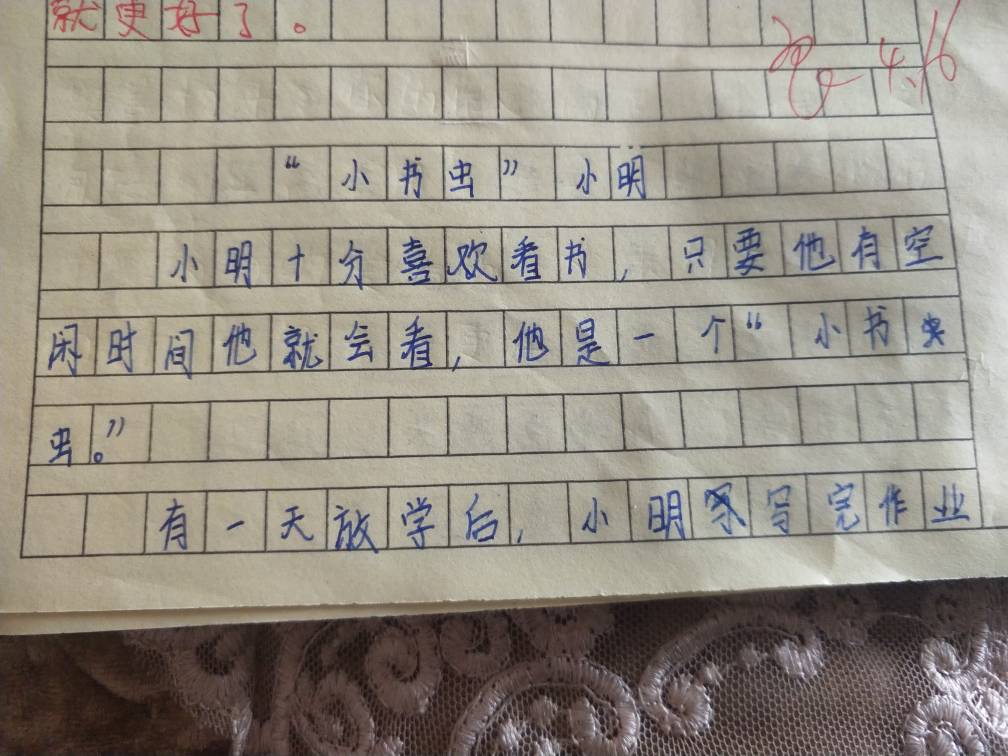 就更好了。
4.16
“小书虫”小明
小明十分喜欢看书，只要他有空
闲时间他就会看，他是一个“小书
虫。”
有一天放学后，小明写完作业